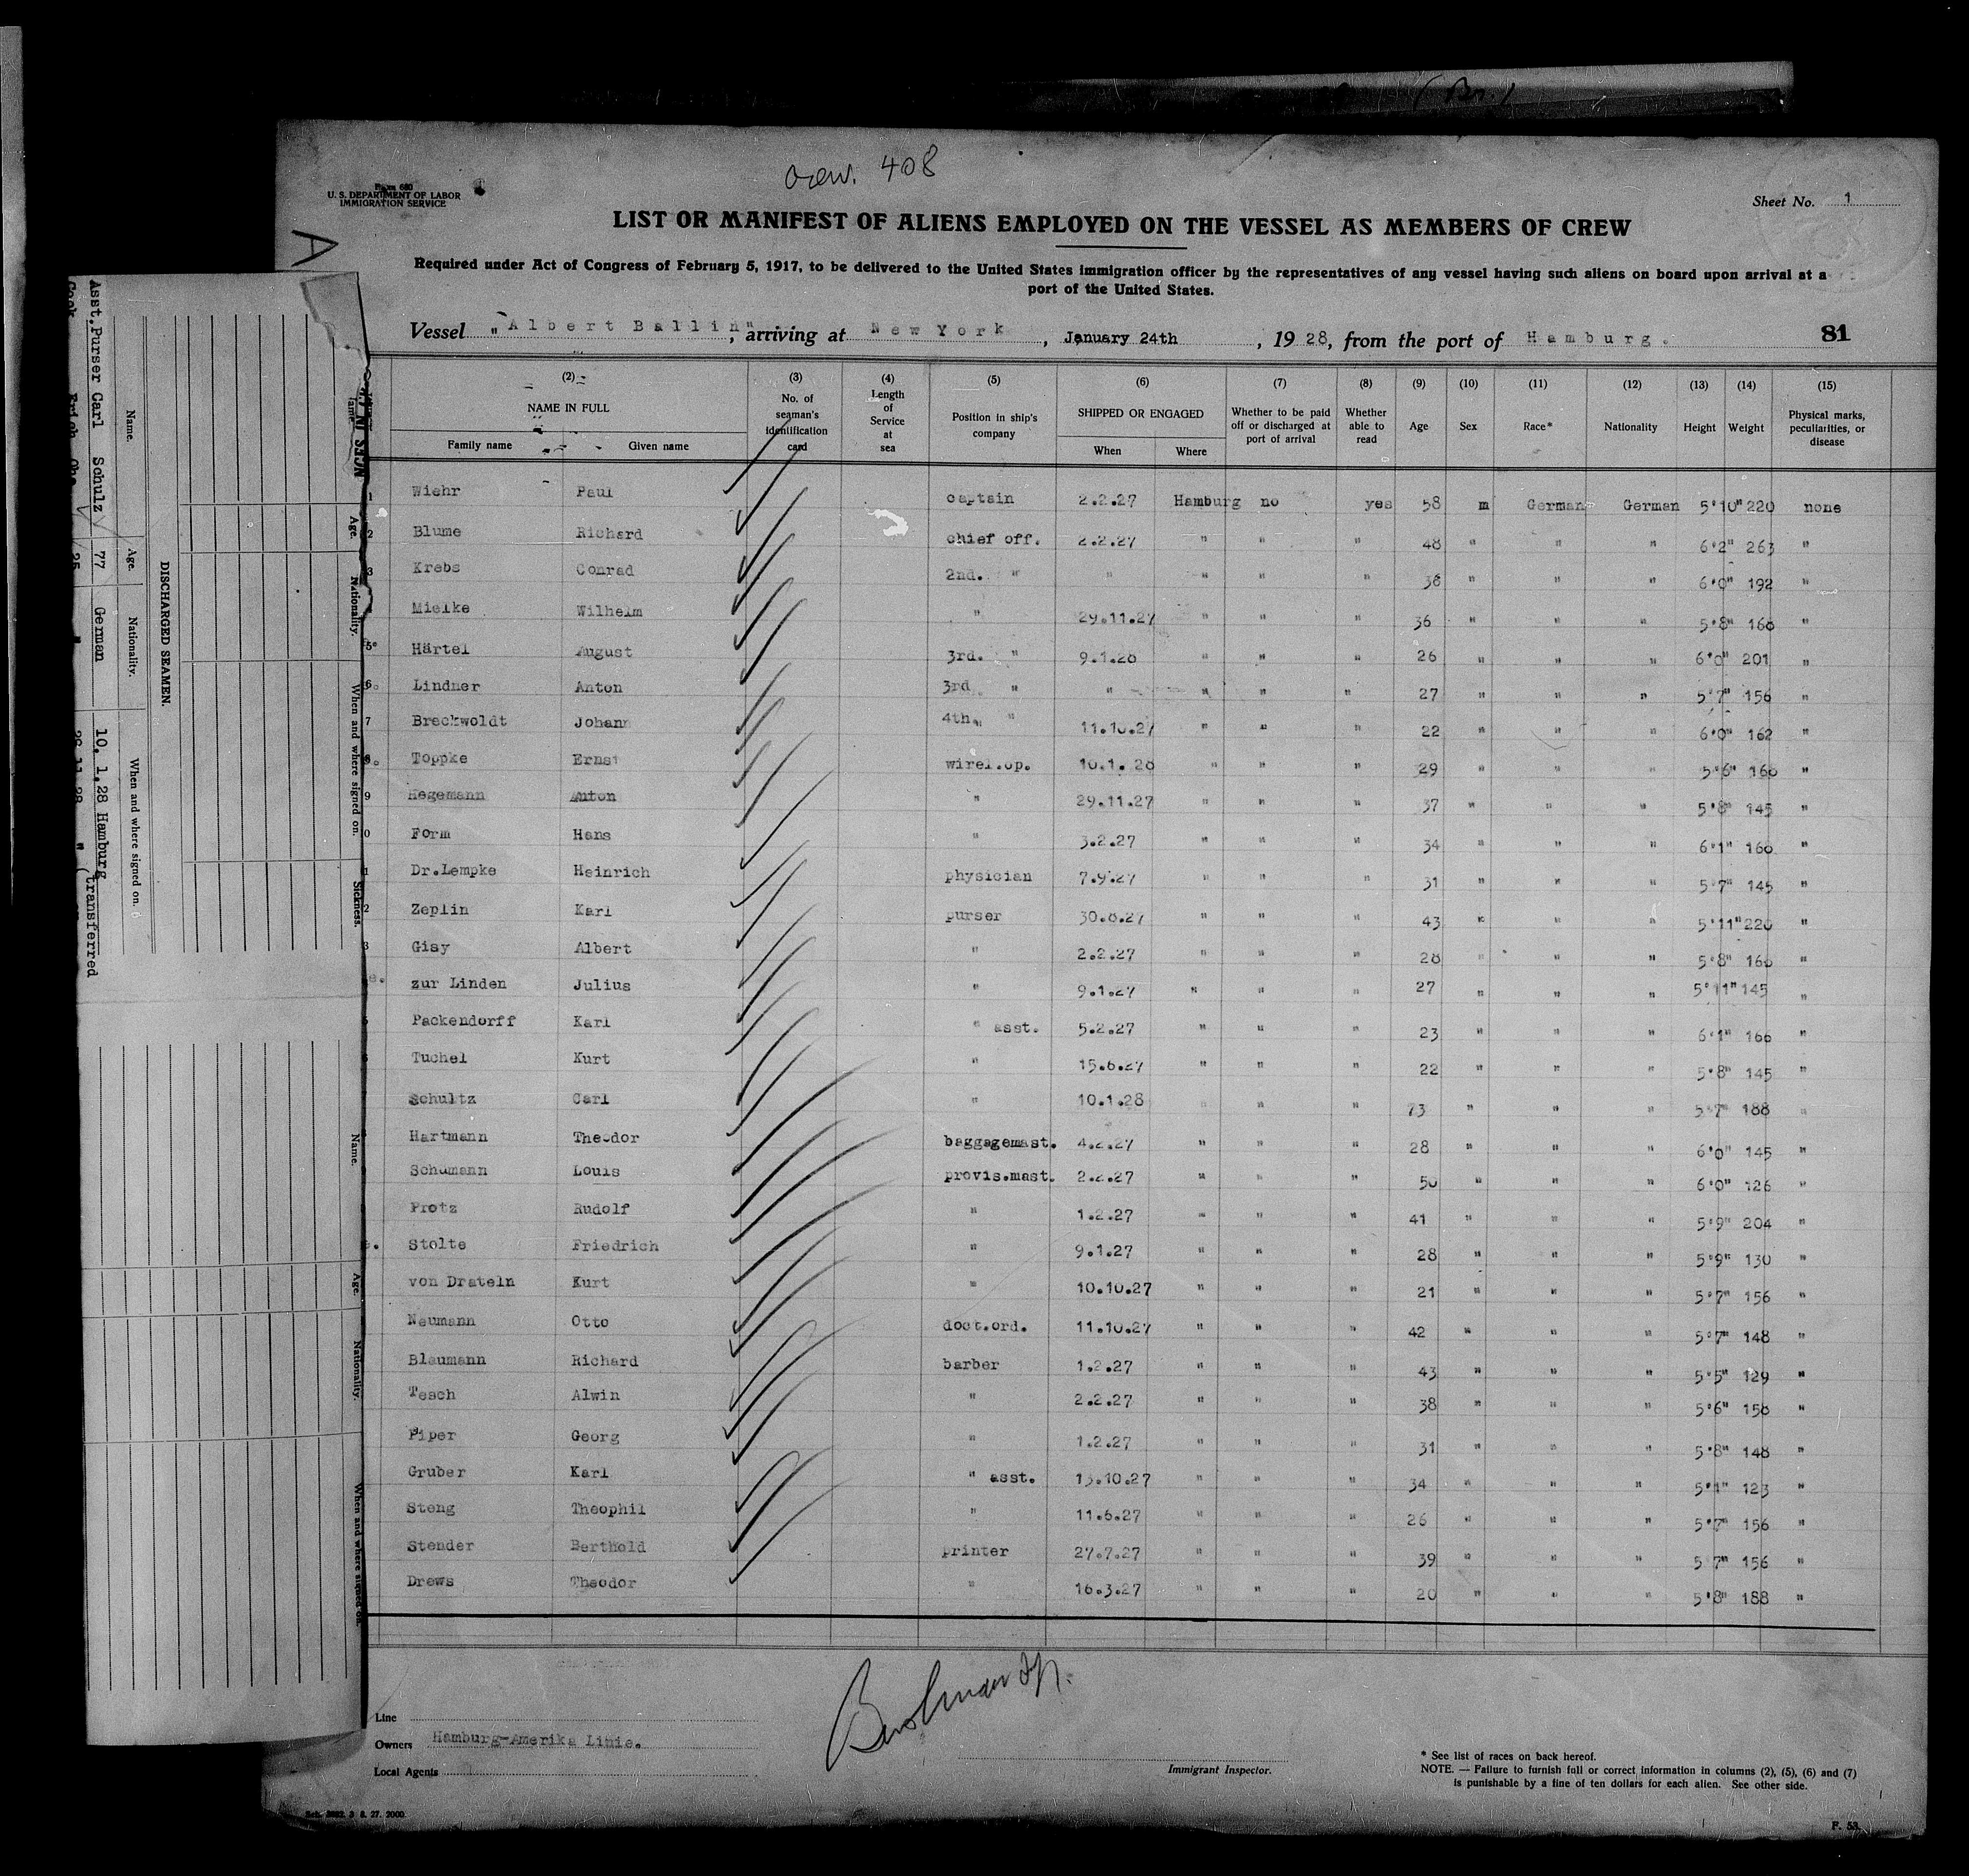 408
Form 680
U. S. DEPARTMENT OF LABOR
IMMIGRATION SERVICE
Sheet No. 1
LIST OR MANIFEST OF ALIENS EMPLOYED ON THE VESSEL AS MEMBERS OF CREW
Required under Act of Congress of February 5, 1917, to be delivered to the United States immigration officer by the representatives of any vessel having such aliens on board upon arrival at a
port of the United States.
Vessel "Albert Ballin", arriving at New York, January 24th, 1928, from the port of Hamburg.
81
(2) (3) (4) (5) (6) (7) (8) (9) (10) (11) (12) (13) (14) (15)
NAME IN FULL
Family name Given name
No. of seaman's identification card
Length of Service at sea
Position in ship's company
SHIPPED OR ENGAGED
When Where
Whether to be paid off or discharged at port of arrival
Whether able to read
Age
Sex
Race*
Nationality
Height
Weight
Physical marks, peculiarities, or disease
1 Wiehr Paul captain 2.2.27 Hamburg no yes 58 m German German 5'10" 220 none
2 Blume Richard chief off. 2.2.27 " " " 48 " " " 6'2" 263 "
3 Krebs Conrad 2nd. " " " " " 38 " " " 6'0" 192 "
Mielke Wilhelm " 29.11.27 " " " 36 " " " 5'8" 168 "
5 Härtel August 3rd. " 9.1.28 " " " 26 " " " 6'0" 201 "
6 Lindner Anton 3rd " " " " " 27 " " " 5'7" 156 "
7 Breckwoldt Johann 4th. " 11.10.27 " " " 22 " " " 6'0" 162 "
8 Toppke Ernst wirel.op. 10.1.28 " " " 29 " " " 5'6" 168 "
9 Hegemann Anton " 29.11.27 " " " 37 " " " 5'8" 145 "
0 Form Hans " 3.2.27 " " " 34 " " " 6'1" 168 "
1 Dr.Lempke Heinrich physician 7.9.27 " " " 31 " " " 5'7" 145 "
2 Zeplin Karl purser 30.8.27 " " " 43 " " " 5'11" 220 "
3 Gisy Albert " 2.2.27 " " " 28 " " " 5'8" 168 "
zur Linden Julius " 9.1.27 " " " 27 " " " 5'11" 145 "
Packendorff Karl " asst. 5.2.27 " " " 23 " " " 6'1" 166 "
Tuchel Kurt " 15.6.27 " " " 22 " " " 5'8" 145 "
Schultz Carl " 10.1.28 " " " 73 " " " 5'7" 188 "
Hartmann Theodor baggagemast. 4.2.27 " " " 28 " " " 6'0" 145 "
Schumann Louis provis.mast. 2.2.27 " " " 50 " " " 6'0" 126 "
Protz Rudolf " 1.2.27 " " " 41 " " " 5'9" 204 "
Stolte Friedrich " 9.1.27 " " " 28 " " " 5'9" 130 "
von Drateln Kurt " 10.10.27 " " " 21 " " " 5'7" 156 "
Neumann Otto doct.ord. 11.10.27 " " " 42 " " " 5'7" 148 "
Blaumann Richard barber 1.2.27 " " " 43 " " " 5'5" 129 "
Tesch Alwin " 2.2.27 " " " 38 " " " 5'6" 158 "
Piper Georg " 1.2.27 " " " 31 " " " 5'8" 148 "
Gruber Karl " asst. 13.10.27 " " " 34 " " " 5'1" 123 "
Steng Theophil " 11.6.27 " " " 26 " " " 5'7" 156 "
Stender Berthold printer 27.7.27 " " " 39 " " " 5'7" 156 "
Drews Theodor " 16.3.27 " " " 20 " " " 5'8" 188 "
Line
Owners Hamburg-Amerika Linie.
Local Agents
Immigrant Inspector.
* See list of races on back hereof.
NOTE. — Failure to furnish full or correct information in columns (2), (5), (6) and (7)
is punishable by a fine of ten dollars for each alien. See other side.
F. 53.
DISCHARGED SEAMEN.
Name. Age. Nationality. When and where signed on.
Asst.Purser Carl Schulz 77 German 10. 1.28 Hamburg
Cook Erich 25 " " (transferred
Age. Nationality. When and where signed on. Sickness.
Name. Age. Nationality. When and where signed on.